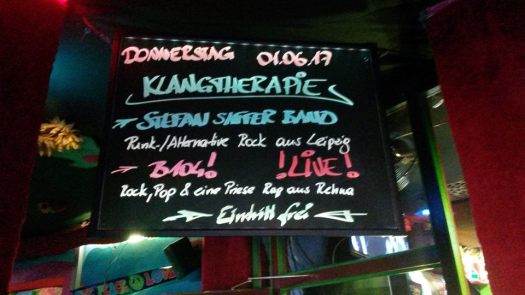 DONNERSTAG 01.06.17
KLANGTHERAPiE
STEFAN SAFFER BAND
Punk-/Alternative Rock aus Leipzig
B104! !LiVE!
Rock, Pop & eine Priese Rap aus Rehna
Eintritt frei